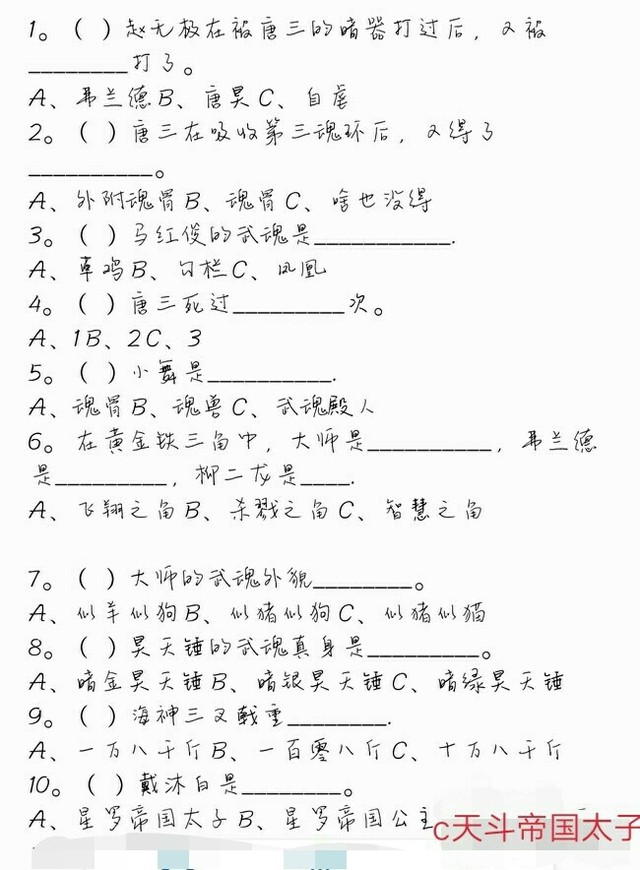 1。( )赵无极在被唐三的暗器打过后，又被
________打了。
A、弗兰德B、唐昊C、自虐
2。( )唐三在吸收第三魂环后，又得了
__________。
A、外附魂骨B、魂骨C、啥也没得
3。( )马红俊的武魂是___________.
A、草鸡B、勾栏C、凤凰
4。( )唐三死过_________次。
A、1B、2C、3
5。( )小舞是__________.
A、魂骨B、魂兽C、武魂殿人
6。在黄金铁三角中，大师是__________，弗兰德
是_________，柳二龙是____.
A、飞翔之角B、杀戮之角C、智慧之角
7。( )大师的武魂外貌________。
A、似羊似狗B、似猪似狗C、似猪似猫
8。( )昊天锤的武魂真身是_________。
A、暗金昊天锤B、暗银昊天锤C、暗绿昊天锤
9。( )海神三叉戟重________.
A、一万八千斤B、一百零八斤C、十万八千斤
10。( )戴沐白是________。
A、星罗帝国太子B、星罗帝国公主 c天斗帝国太子